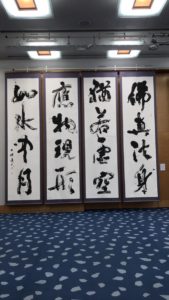 佛真法身
猶若虛空
應物現形
如水中月